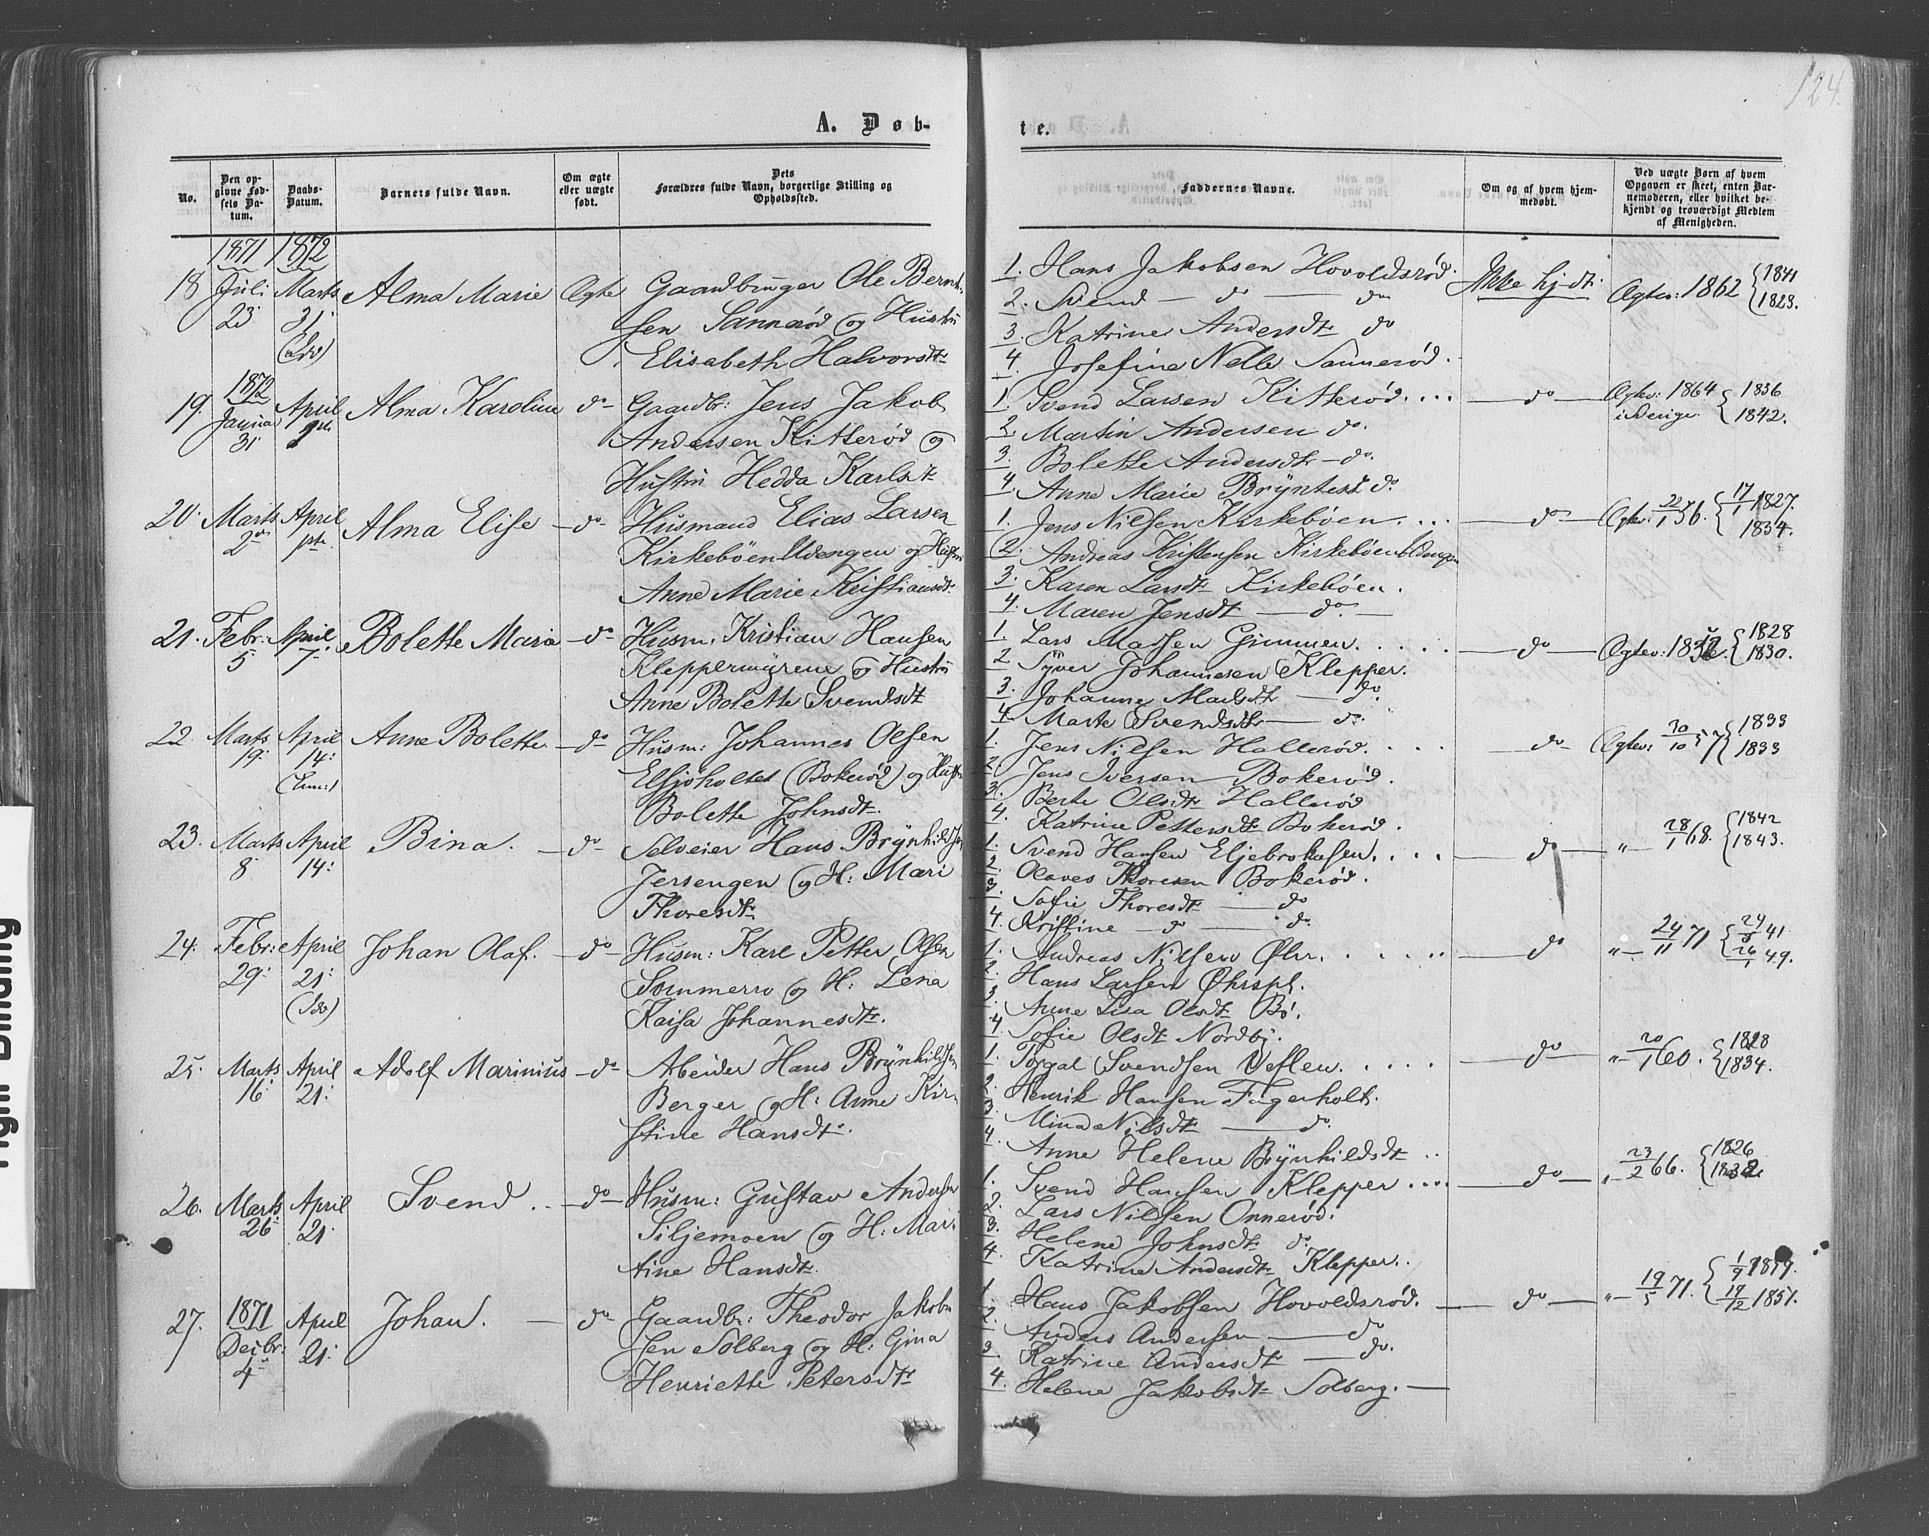 124.
A. Døb-
te.
No.
Den op-
givne Fød-
sels Da-
tum.
Daabs-
Datum.
Barnets fulde Navn.
Om ægte
eller uægte
født.
Dets
Forældres fulde Navn, borgerlige Stilling og
Opholdssted.
Faddernes Navne.
Om og af hvem hjem-
medøbt.
Ved uægte Børn af hvem
Opgaven er skeet, enten Bar-
nemoderen, eller hvilket be-
kjendt og troværdigt Medlem
af Menigheden.
1871 1872
18 Juli Marts Alma Marie Ægte Gaardbruger Ole Bernt-
23 31
sen Sannerød og Hustru
Elisabeth Halvorsdtr
1. Hans Jakobsen Hovoldsrød. Ikke hjdt: Ægtev: 1862 {1841
1823.
2. Svend — do — do
3. Katrine Andersdtr do
4. Josefine Nelle Sannerød.
1872
19. Januar April Alma Karoline do Gaardbr: Jens Jakob
31
Andersen Kitterød og
Hustru Hedda Karlsdtr
1. Svend Larsen Kitterød.... — do — Ægtev: 1864 {1836
i Sverige 1842.
2. Martin Andersen do.
3. Bolette Andersdtr — do.
4. Anne Marie Bryntesdtr do.
20. Marts April Alma Elise — do Husmand Elias Larsen
2 1ste
Kirkebøen Udengen og Hustru
Anne Marie Kristiansdtr
1. Jens Nilsen Kirkebøen... — do — Ægtev: 22/1 56. {17/1 1827.
1834.
2. Andreas Kristensen Kirkebøen Udengen
3. Karen Larsdtr Kirkebøen.
4. Maren Jensdtr — do —
21. Febr: April Bolette Maria — do Husm: Kristian Hansen
5 7
Kleppermyrene og Hustru
Anne Bolette Svendsdtr
1. Lars Madsen Grimmen..... — do — Ægtev: {1828
1830.
2 Syver Johannesen Klepper.
3. Johanne Madsdtr — do.
4 Marte Svendsdtr — do.
22. Marts April Anne Bolette — do Husm: Johannes Olsen
19. 14:
Elsjøholtet (Bokerød) og Hustru
Bolette Johnsdtr.
1. Jens Nilsen Hallerød.... — do Ægtev: 30/10 57 {1833
1833
2. Jens Iversen Bokerød.
3. Berte Olsdtr Hallerød
4. Katrine Pettersdtr Bokerød.
23. Marts April Bina. — do Selveier Hans Brynhildsen
8 14:
Jersengen og H: Mari
Thoresdtr
1. Svend Hansen Eljebrokasen.... — do „— 28/1 68. {1842
1843.
2. Olaves Thoresen Bokerød.
3. Sofie Thoresdtr — do
4. Kristine — do — do.
24. Febr: April Johan Olaf. — do Husm: Karl Petter Olsen
29: 21:
Sommerro og H: Lena
Kaisa Johannesdtr.
1. Andreas Nilsen Øhr...... — do „— 24/11 71 {24/5 41.
26/1 49.
2. Hans Larsen Øhrspl.
3. Anne Lisa Olsdtr Bø.
4. Sofie Olsdt Nordby.
25. Marts April Adolf Marinius — do Arbeider Hans Brynhildsen
16: 21:
Berger og H: Anne Kir-
stine Hansdtr.
1. Torgal Svendsen Veflen..... — do — „— 20/1 60. {1828
1834.
2. Henrik Hansen Fagerholt.
3. Mina Nilsdtr — do.
4. Anne Helene Brynhildsdtr..
26. Marts April Svend.. — do Husm: Gustav Andersen
26 21:
Siljemoen og H: Mar-
tine Hansdtr.
1. Svend Hansen Klepper.... — do — „— 23/2 66. {1826
2. Lars Nilsen Onnerød.
3. Helene Johnsdtr do.
4. Katrine Andersdtr Klepper..
27. 1871 April Johan. — do Gaardbr: Theodor Jakob-
Decbr: 21:
4
sen Solberg og H: Gina
Henriette Petersdtr
1. Hans Jakobsen Hovoldsrød. — do — „— 19/5 71. {1/9 1849.
19/12 1851.
2. Anders Andersen — do
3. Katrine Andersdtr — do.
4. Helene Jakobsdtr Solberg. —